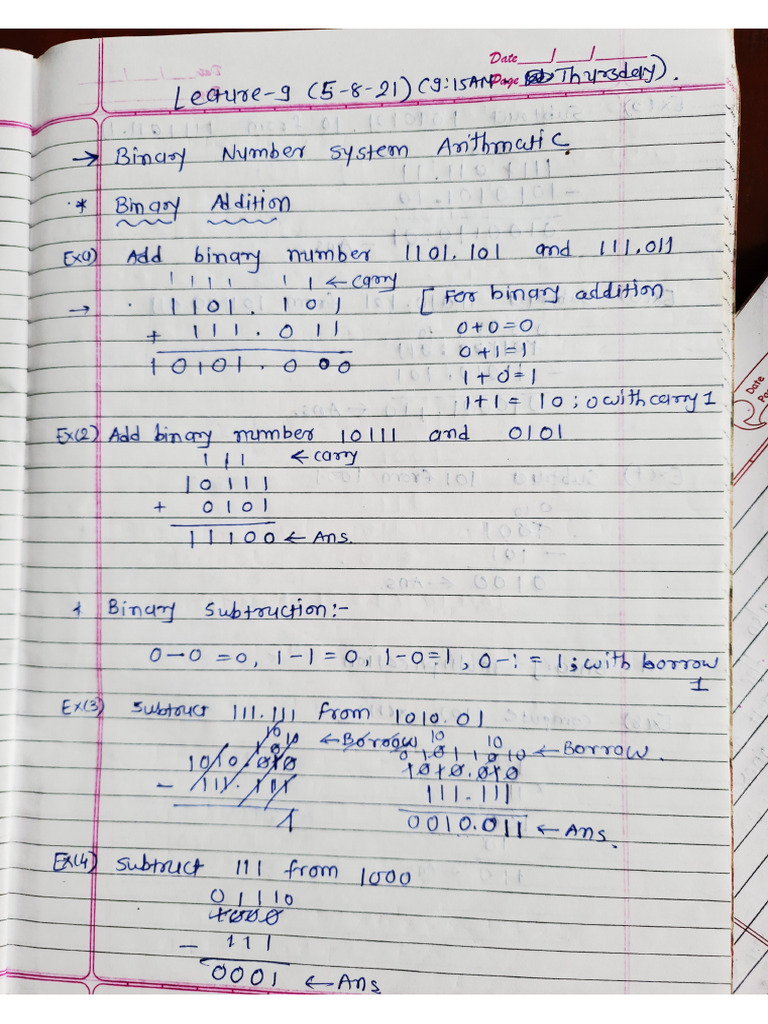 Date __/__/__
Lecture-9 (5-8-21) (9:15AM Page Thursday).
→ Binary Number System Arithmatic.
* Binary Addition
Ex(1) Add binary number 1101.101 and 111.011
1 1 1 1 1 1 ← carry
→ 1101.101 [For binary addition
+ 111.011 0+0=0
10101.000 0+1=1
1+0=1
1+1=10; 0 with carry 1
Ex(2) Add binary number 10111 and 0101
1 1 1 ← carry
10111
+ 0101
11100 ← Ans.
* Binary Subtruction:-
0-0=0, 1-1=0, 1-0=1, 0-1=1; with borrow
1
Ex(3) Subtruct 111.111 from 1010.01
10 10 ← Borrow 10 10
0 10 1 1 0 10 ← Borrow.
1010.010 1010.010
- 111.111 111.111
1 0010.011 ← Ans.
Ex(4) Subtruct 111 from 1000
0 1 1 10
1000
- 111
0001 ← Ans
Date